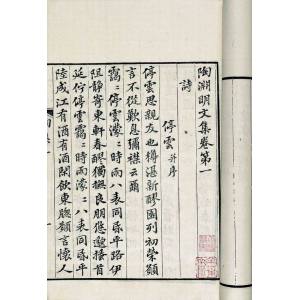 陶淵明文集卷第一
詩
停雲并序
停雲思親友也樽湛新醪園列初榮願
言不從歎息彌襟云爾
靄〻停雲濛〻時雨八表同昏平路伊
阻靜寄東軒春醪獨撫良朋悠邈搔首
延佇停雲靄〻時雨濛〻八表同昏平
陸成江有酒有酒閒飲東牕願言懷人